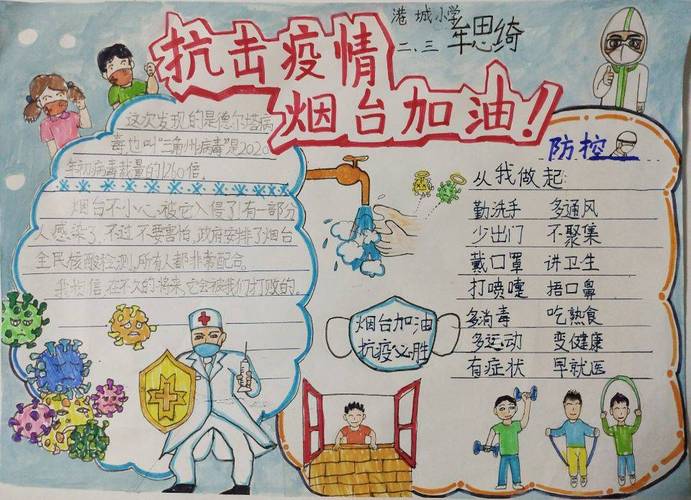 港城小学
二、三 车思绮
抗击疫情
烟台加油!
这次发现的是德尔塔病
毒也叫"三角洲病毒"是2020
年初病毒载量的1260倍。
烟台不小心被它入侵了!有一部分
人感染了,不过不要害怕,政府安排了烟台
全民核酸检测,所有人都非常配合。
我相信,在不久的将来,它会被我们打败的。
防控
从我做起:
勤洗手 多通风
少出门 不聚集
戴口罩 讲卫生
打喷嚏 捂口鼻
多消毒 吃熟食
多运动 变健康
有症状 早就医
烟台加油
抗疫必胜